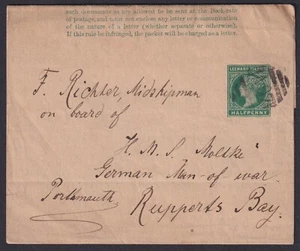 such document as is allowed to be sent at the Book-rate
of postage, and must not enclose any letter or communication
of the nature of a letter (whether separate or otherwise).
If this rule be infringed, the packet will be charged as a letter.
F. Richter, Midshipman
on board of
LEEWARD ISLANDS
HALFPENNY
H. M. S. Moltke
German Man-of-war.
Portsmouth
Rupperts Bay.